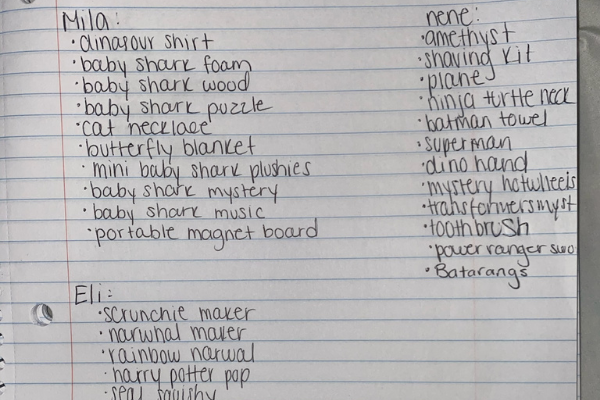 Mila:
· dinasour shirt
· baby shark foam
· baby shark wood
· baby shark puzzle
· cat necklace
· butterfly blanket
· mini baby shark plushies
· baby shark mystery
· baby shark music
· portable magnet board
nene:
· amethyst
· shaving kit
· plane
· ninja turtle neck
· batman towel
· superman
· dino hand
· mystery hotwheels
· transformers myst
· toothbrush
· power ranger swo
· Batarangs
Eli:
· scrunchie maker
· narwhal maker
· rainbow narwal
· harry potter pop
· seal squishy